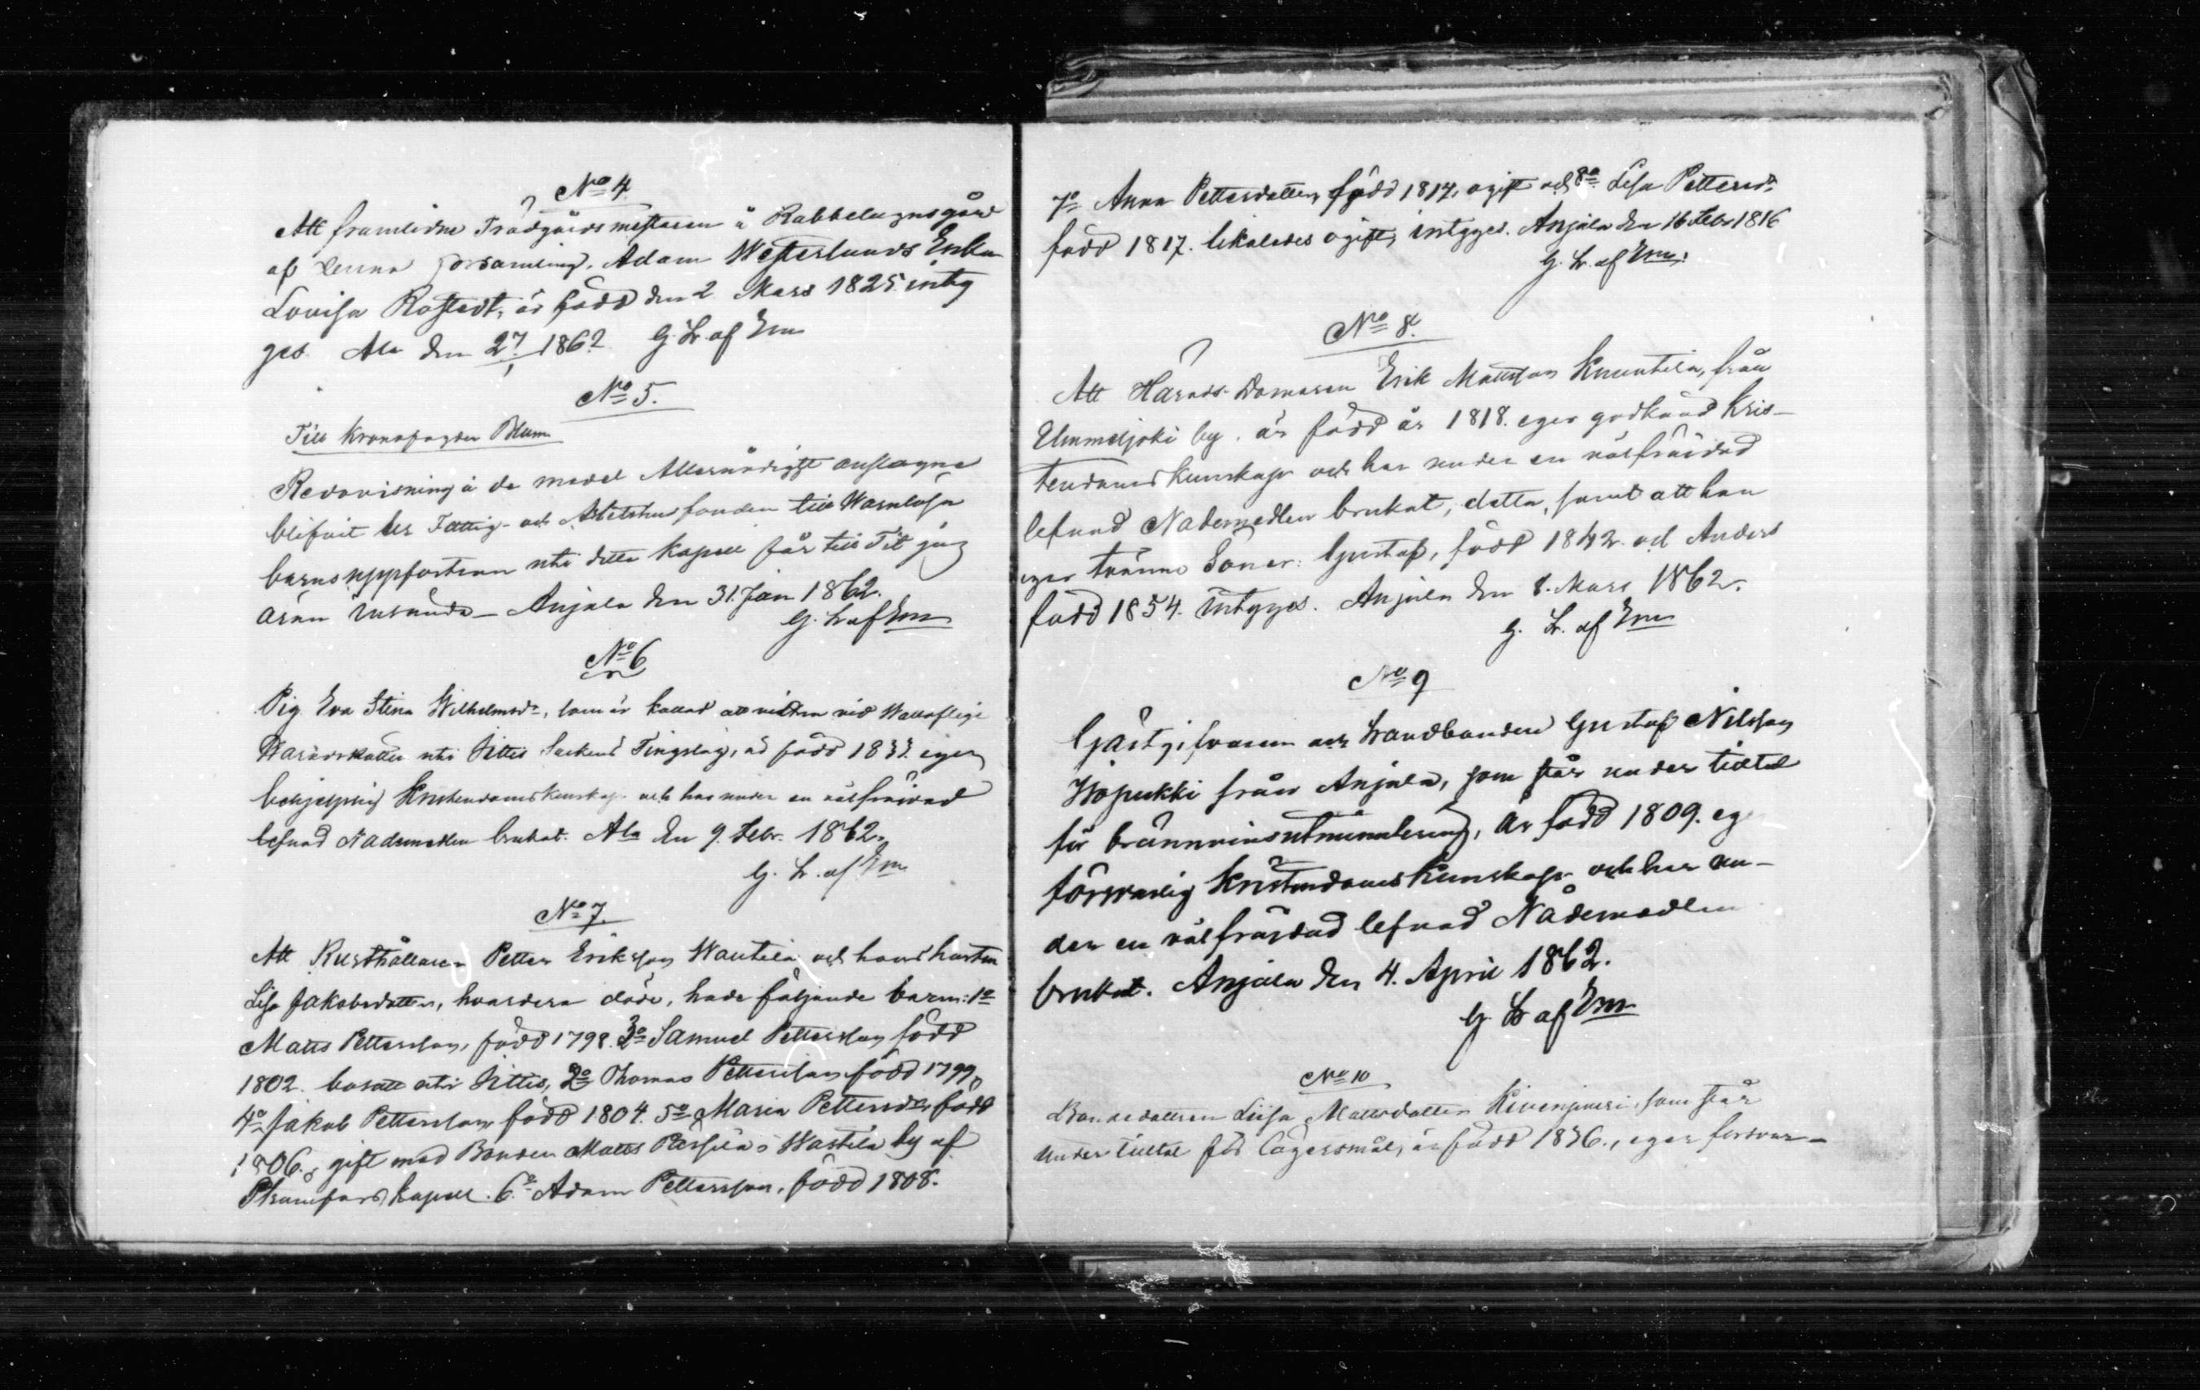 No 4.
Att framlidne Trädgårdsmästaren å Rabbelugnsgård
af denna Församling, Adam Westerlunds Enka
Lovisa Rostedt, är född den 2 Mars 1825 inty
gas. Ala den 27/1 1862 G. L. af Em
No 5.
Till Kronofogden Blum
Redovisning å de medel Allernådigst anslagne
blifvit ur Fattig- och Arbetshusfonden till Wärnlösa
barns uppfostran uti detta Kapell får till Tit jag
äran insända – Anjala den 31 Jan 1862.
G. L. af Em
No 6
Pig. Eva Stina Wilhelmsdr, som är kallad att vittna vid
Häradsrätten uti Sittis Tingslag, är född 1833. eger
behjelplig Kristendomskunskap och har under en välfräjdad
lefnad Nådemedlen brukat. Ala den 9. Febr. 1862.
G. L. af Em
No 7.
Att Rusthållaren Petter Eriksson Wautila och hans hustru
Lisa Jakobsdotter, hvardera döde, hade följande barn: 1o
Matts Pettersson, född 1798. 3o Samuel Pettersson född
1802. bosatt uti Sittis, 2o Thomas Pettersson född 1799,
4o Jakob Pettersson född 1804. 5o Maria Pettersdr född
1806, gift med Bonden Matts i Wastila by af
Strömfors Kapell. 6o Adam Pettersson, född 1808.
7o Anna Pettersdotter, född 1814, ogift och 8o Lisa Pettersdr
född 1817. likaledes ogift, intygas. Anjala den 16 Febr 1816
G. L. af Em.
No 8.
Att Härads-Domaren Erik Mattsson Knuutila, från
Ummeljoki by, är född år 1818. eger godkänd Kris-
tendomskunskap och har under en välfräjdad
lefnad Nådemedlen brukat, detta, samt att han
eger tvänne Söner: Gustaf, född 1842 och Anders
född 1854. intygas. Anjala den 8. Mars 1862.
G. L. af Em
No 9
Gästgifvaren och Landbonden Gustaf Nilsson
Hopukki från Anjala, som står under tilltal
för brännvinsutminutering, är född 1809. eg
försvarlig Kristendoms Kunskap och har un-
der en välfräjdad lefnad Nådemedlen
brukat. Anjala den 4. April 1862.
G. L. af Em
No 10
Bondedottren Lisa Mattsdotter, som står
under tilltal för lägersmål, är född 1836., eger försvar-